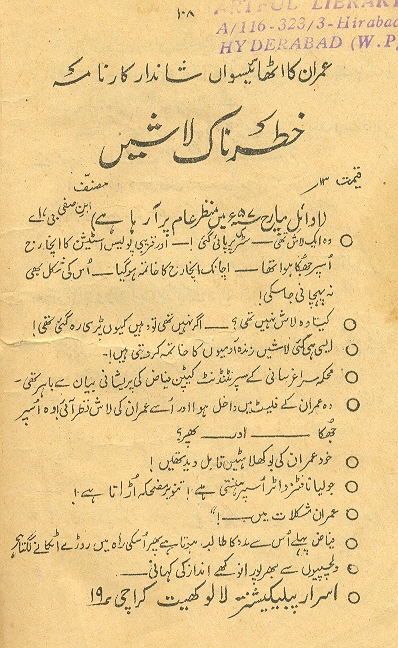 ۱۰۸
ARTFUL LIBRARY
A/116-323/3-Hirabad
HYDERABAD (W.P)
عمران کا اٹھائیسواں شاندار کارنامہ
خطرناک لاشیں
قیمت ۱۳ر
مصنف
ابن صفی بی، اے
(اوائل مارچ ۵۷ء میں منظر عام پر آ رہا ہے)
وہ ایک لاش تھی — سڑک پر پائی گئی! — اور قریبی پولیس اسٹیشن کا انچارج
اُسپر جھکا ہوا تھا — اچانک انچارج کا خاتمہ ہو گیا — اُس کی شکل بھی
نہ پہچانی جا سکی!
کیا وہ لاش نہیں تھی؟ — اگر نہیں تھی تو وہیں کیوں پڑی رہ گئی تھی!
ایسی ہی کئی لاشیں زندہ آدمیوں کا خاتمہ کر دیتی ہیں!۔
محکمہ سراغرسانی کے سپرنٹنڈنٹ کیپٹن فیاض کی پریشانی بیان سے باہر تھی۔
وہ عمران کے فلیٹ میں داخل ہوا اور اُسے عمران کی لاش نظر آئی! وہ اُسپر
جھکا — اور — پھر؟
خود عمران کی بوکھلاہٹیں قابل دید تھیں!
جولیا نافٹزواٹر اُسپر ہنستی ہے! تنویر مضحکہ اُڑاتا ہے!
عمران مشکلات میں —!"
فیاض پہلے اُس سے مدد کا طالب ہوتا ہے پھر اُسکی راہ میں روڑے اٹکانے لگتا ہے
دلچسپیوں سے بھرپور انوکھے انداز کی کہانی —
اسرار پبلیکیشنز لالوکھیت کراچی ۱۹